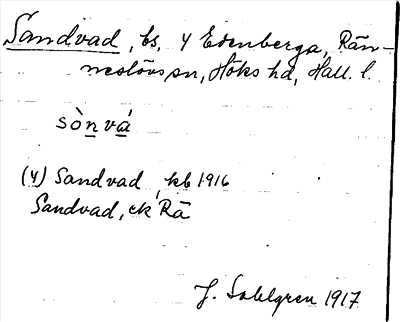 Sandvad, bs. 4 Edenberga, Rän-
neslövs sn, Höks hd, Hall. l.
sònvá
(4) Sandvad, kb 1916
Sandvad, ck Rä
J. Sahlgren 1917